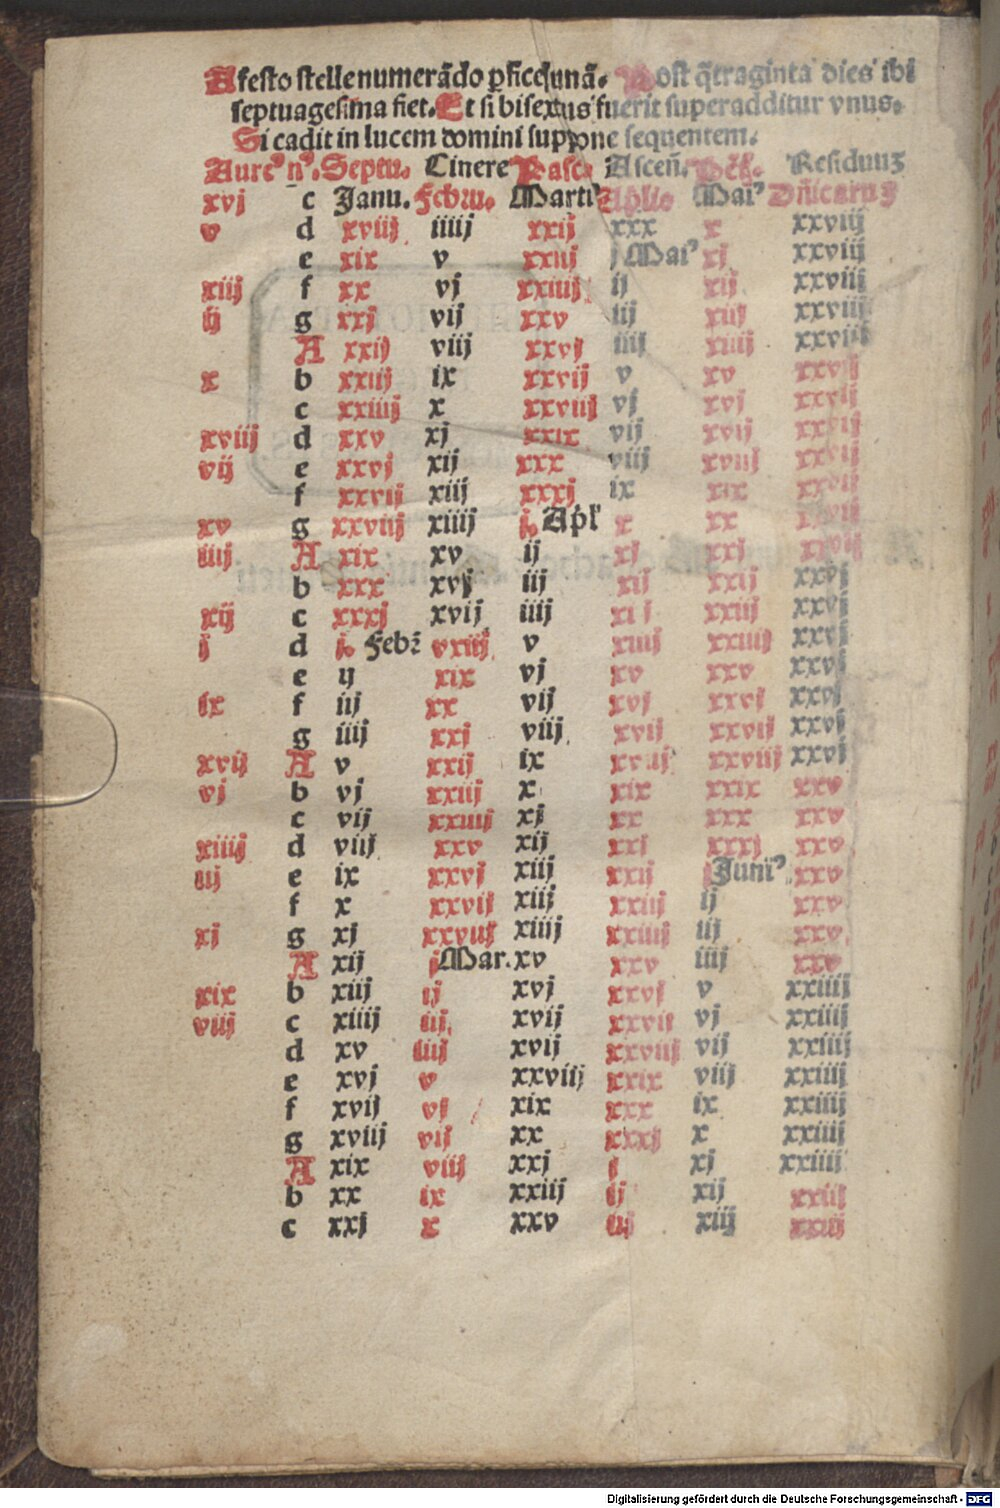 A festo stelle numerādo ꝑfice lunā. Post q̄traginta dies ibi
septuagesima fiet. Et si bisextus fuerit superadditur vnus.
Si cadit in lucem domini suppone sequentem.
Aureꝰ nꝰ. Septu. Cinere Pasc. Asceñ. Residuuꝫ
xvj c Janu. Febru. Martiꝰ Maiꝰ
v d xviij iiij xxij xxx x xxviij
e xix v xxiij j Maiꝰ xj xxviij
xiij f xx vj xxiiij ij xij xxviij
ij g xxj vij xxv iij xiij xxviij
A xxij viij xxvj iiij xiiij xxviij
x b xxiij ix xxvij v xv xxvij
c xxiiij x xxviij vj xvj xxvij
xviij d xxv xj xxix vij xvij xxvij
vij e xxvj xij xxx viij xviij xxvij
f xxvij xiij xxxj ix xix xxvij
xv g xxviij xiiij j. Apl x xx xxvij
iiij A xix xv ij xj xxj xxvij
b xxx xvj iij xij xxij xxvj
xij c xxxj xvij iiij xiij xxiij xxvj
j d j. Feb vxiij v xiiij xxiiij xxvj
e ij xix vj xv xxv xxvj
ix f iij xx vij xvj xxvj xxvj
g iiij xxj viij xvij xxvij xxvj
xvij A v xxij ix xviij xxviij xxvj
vj b vj xxiij x xix xxix xxv
c vij xxiiij xj xx xxx xxv
xiiij d viij xxv xij xxj xxxj xxv
iij e ix xxvj xiij xxij j Juniꝰ xxv
f x xxvij xiij xxiij ij xxv
xj g xj xxviij xiiij xxiiij iij xxv
A xij j Mar. xv xxv iiij xxv
xix b xiij ij xvj xxvj v xxiiij
viij c xiiij iij xvij xxvij vj xxiiij
d xv iiij xvij xxviij vij xxiiij
e xvj v xxviij xxix viij xxiiij
f xvij vj xix xxx ix xxiiij
g xviij vij xx xxxj x xxiiij
A xix viij xxj j xj xxiiij
b xx ix xxiij ij xij xxiij
c xxj x xxv iij xiij xxiij
Digitalisierung gefördert durch die Deutsche Forschungsgemeinschaft - DFG